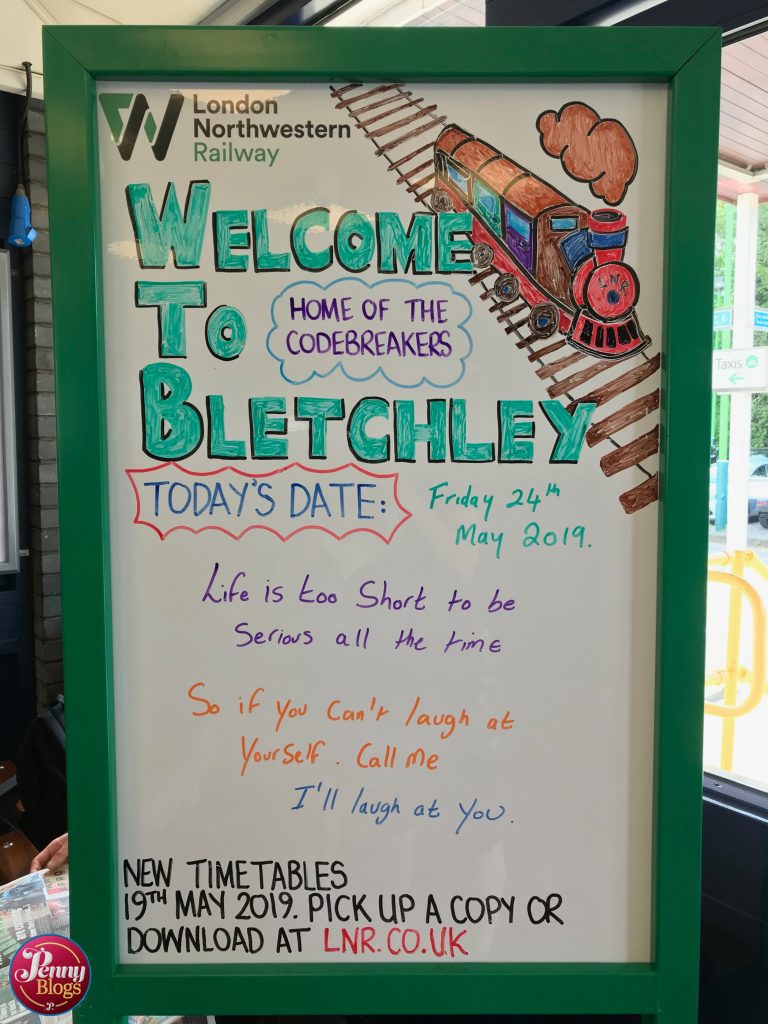 London
Northwestern
Railway
LNR
WELCOME
TO
HOME OF THE
CODEBREAKERS
BLETCHLEY
Taxis
TODAY'S DATE:
Friday 24th
May 2019.
Life is too Short to be
Serious all the time
So if you Can't laugh at
Yourself. Call Me
I'll laugh at You.
NEW TIMETABLES
19TH MAY 2019. PICK UP A COPY OR
DOWNLOAD AT LNR.CO.UK
Penny
Blogs